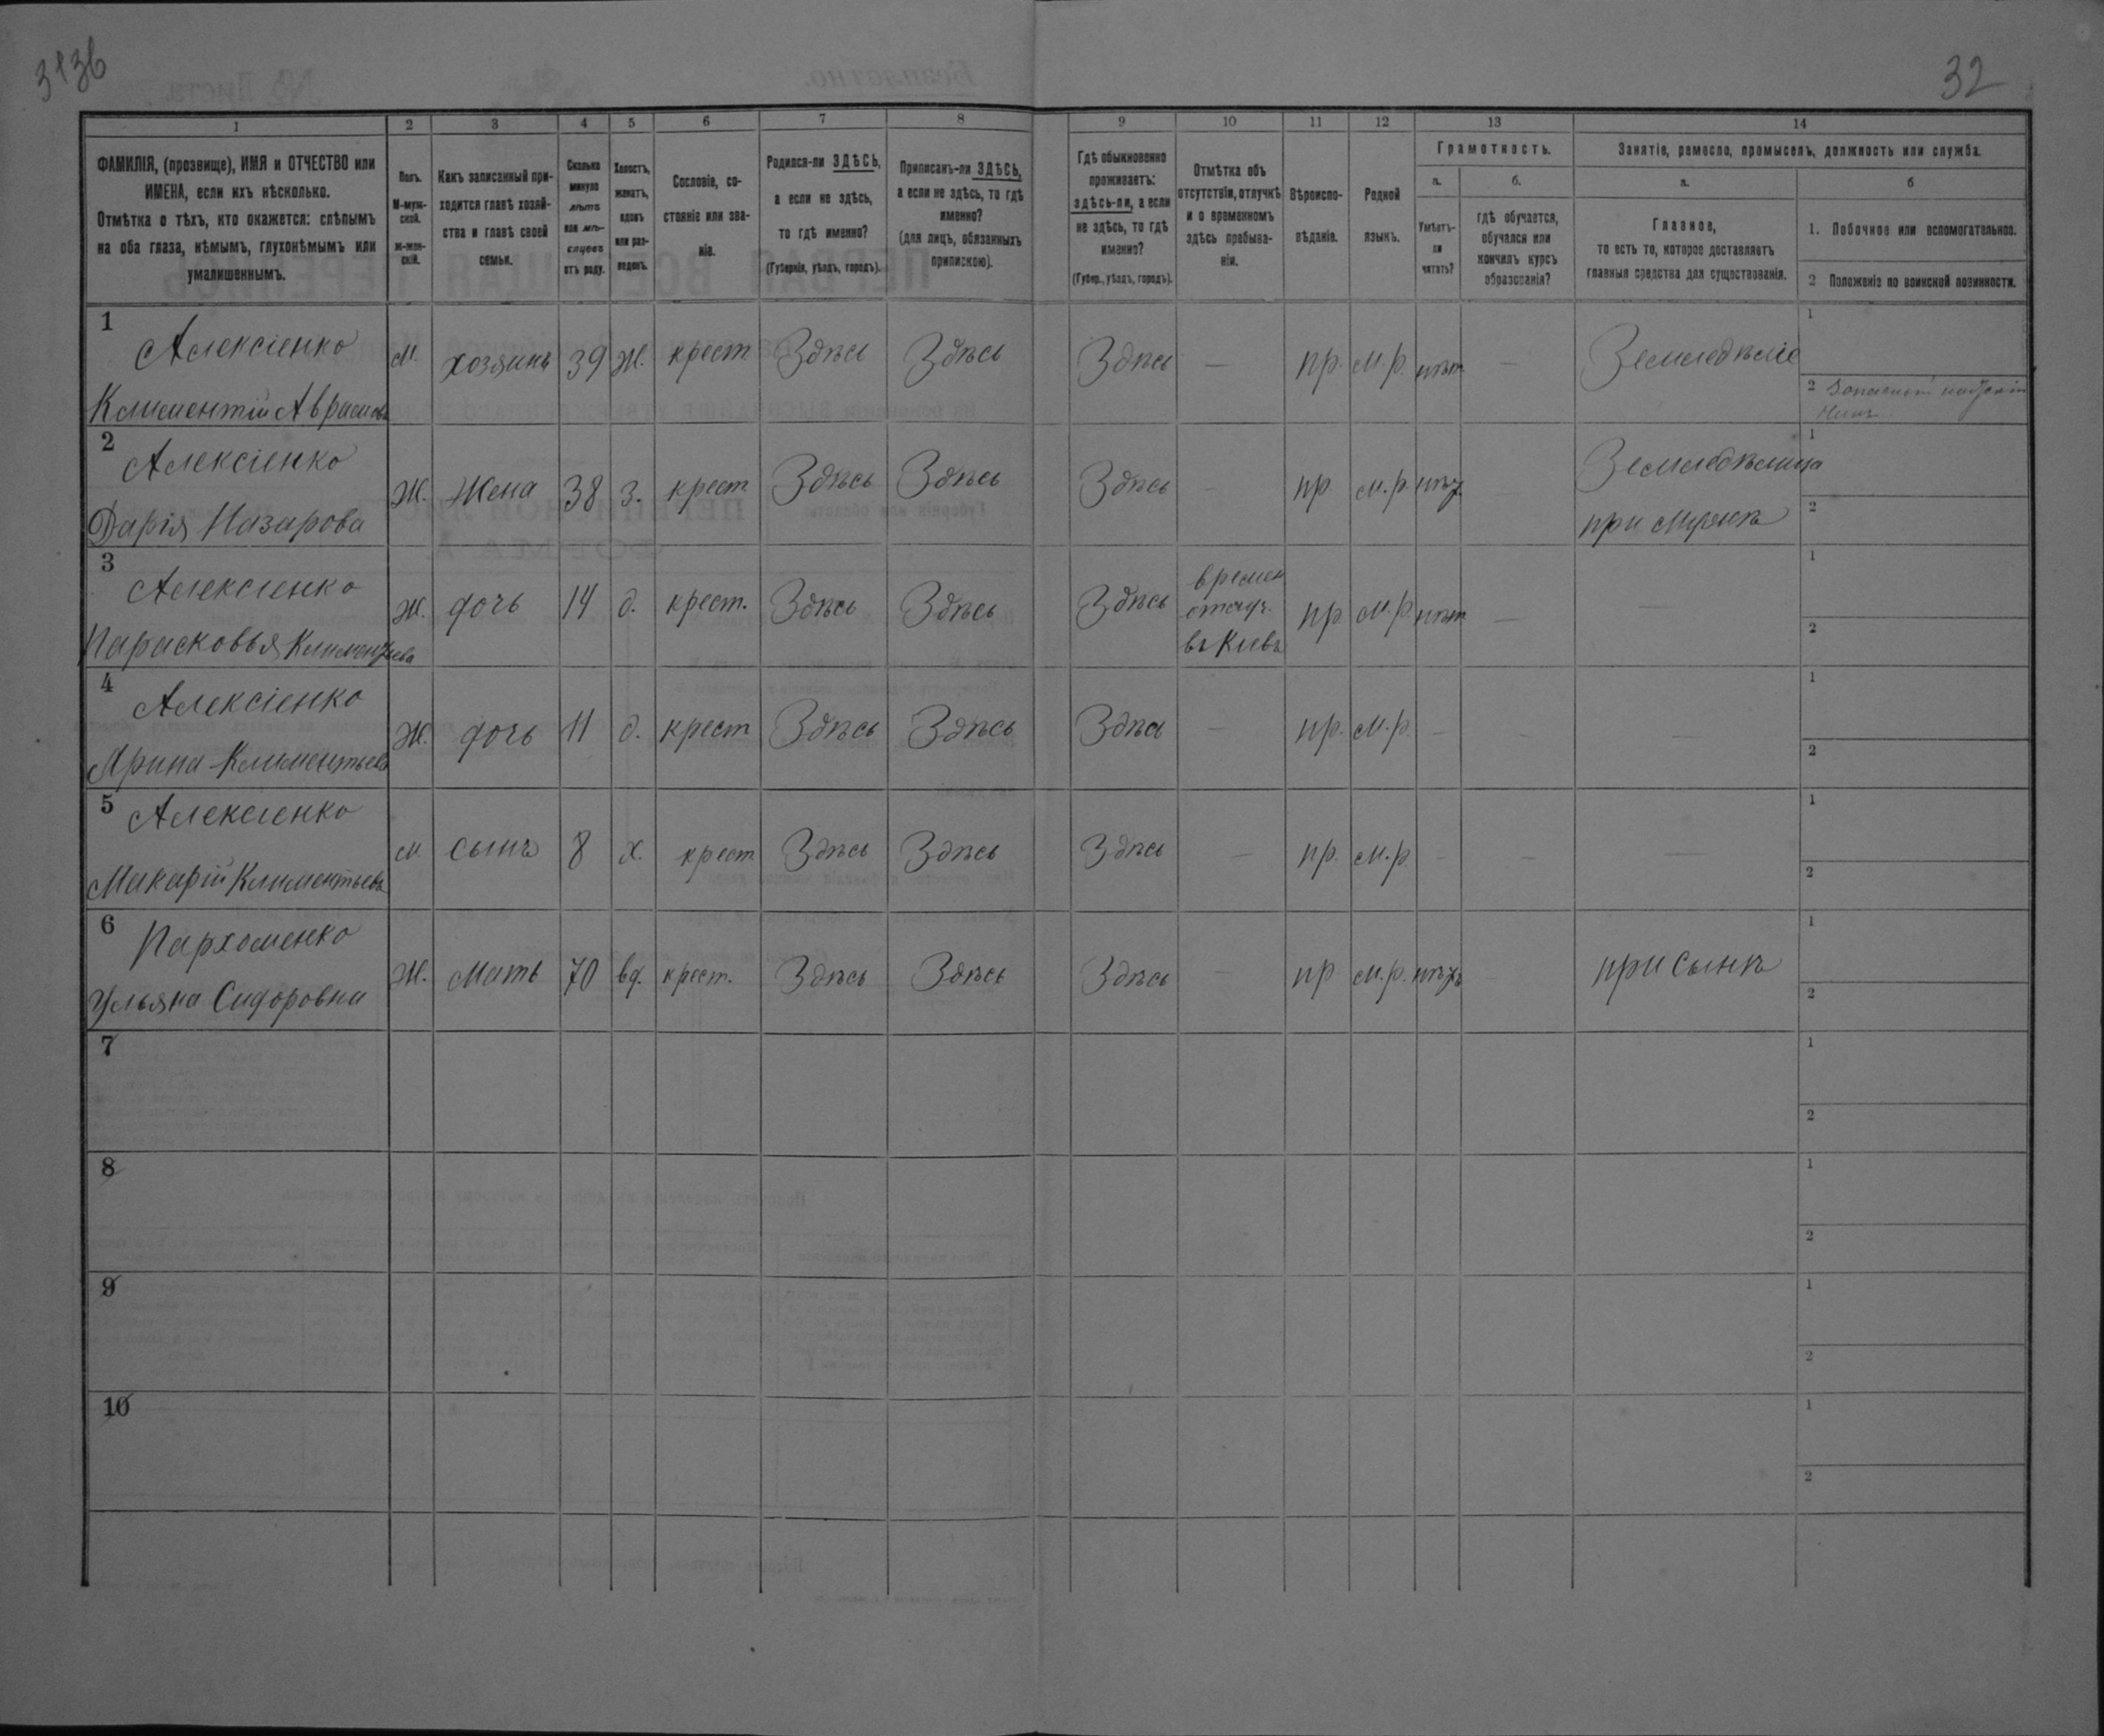 3136
32
1 2 3 4 5 6 7 8 9 10 11 12 13 14
ФАМИЛІЯ, (прозвище), ИМЯ и ОТЧЕСТВО или
ИМЕНА, если ихъ нѣсколько.
Отмѣтка о тѣхъ, кто окажется: слѣпымъ
на оба глаза, нѣмымъ, глухонѣмымъ или
умалишеннымъ.
Полъ.
М-муж-
ской.
ж-жен-
скій.
Какъ записанный при-
ходится главѣ хозяй-
ства и главѣ своей
семьи.
Сколько
минуло
лѣтъ
или мѣ-
сяцевъ
отъ роду.
Холостъ,
женатъ,
вдовъ
или раз-
веденъ.
Сословіе, со-
стояніе или зва-
ніе.
Родился-ли ЗДѢСЬ,
а если не здѣсь,
то гдѣ именно?
(Губернія, уѣздъ, городъ).
Приписанъ-ли ЗДѢСЬ,
а если не здѣсь, то гдѣ
именно?
(для лицъ, обязанныхъ
припискою).
Гдѣ обыкновенно
проживаетъ:
здѣсь-ли, а если
не здѣсь, то гдѣ
именно?
(Губер., уѣздъ, городъ).
Отмѣтка объ
отсутствіи, отлучкѣ
и о временномъ
здѣсь пребыва-
ніи.
Вѣроиспо-
вѣданіе.
Родной
языкъ.
Грамотность.
а.
Умѣетъ-
ли
читать?
б.
гдѣ обучается,
обучался или
кончилъ курсъ
образованія?
Занятіе, ремесло, промыселъ, должность или служба.
а.
Главное,
то есть то, которое доставляетъ
главныя средства для существованія.
б
1. Побочное или вспомогательное.
2 Положеніе по воинской повинности.
1 Алексіенко
Климентій Аврамовъ
м. хозяинъ 39 ж. крест Здѣсь Здѣсь Здѣсь — пр. м.р. нѣт — Земледѣліе
1
2 Запасной
2 Алексіенко
Дарія Назарова
Ж. Жена 38 з. крест Здѣсь Здѣсь Здѣсь - пр. м.р. нѣт Земледѣлица
при мужѣ
1
2
3 Алексіенко
Парасковья Климентьева
Ж. дочь 14 д. крест. Здѣсь Здѣсь Здѣсь
времен
отлуч.
въ Кіевъ
пр. м.р. нѣт — —
1
2
4 Алексіенко
Ярина Климентьева
Ж. дочь 11 д. крест Здѣсь Здѣсь Здѣсь — пр. м.р. - - —
1
2
5 Алексіенко
Макарій Климентьевъ
м. сынъ 8 х. крест Здѣсь Здѣсь Здѣсь — пр. м.р. - — —
1
2
6 Пархоменко
Ульяна Сидоровна
Ж. Мать 70 вд. крест. Здѣсь Здѣсь Здѣсь - пр м.р. нѣтъ при сынѣ
1
2
7
1
2
8
1
2
9
1
2
10
1
2